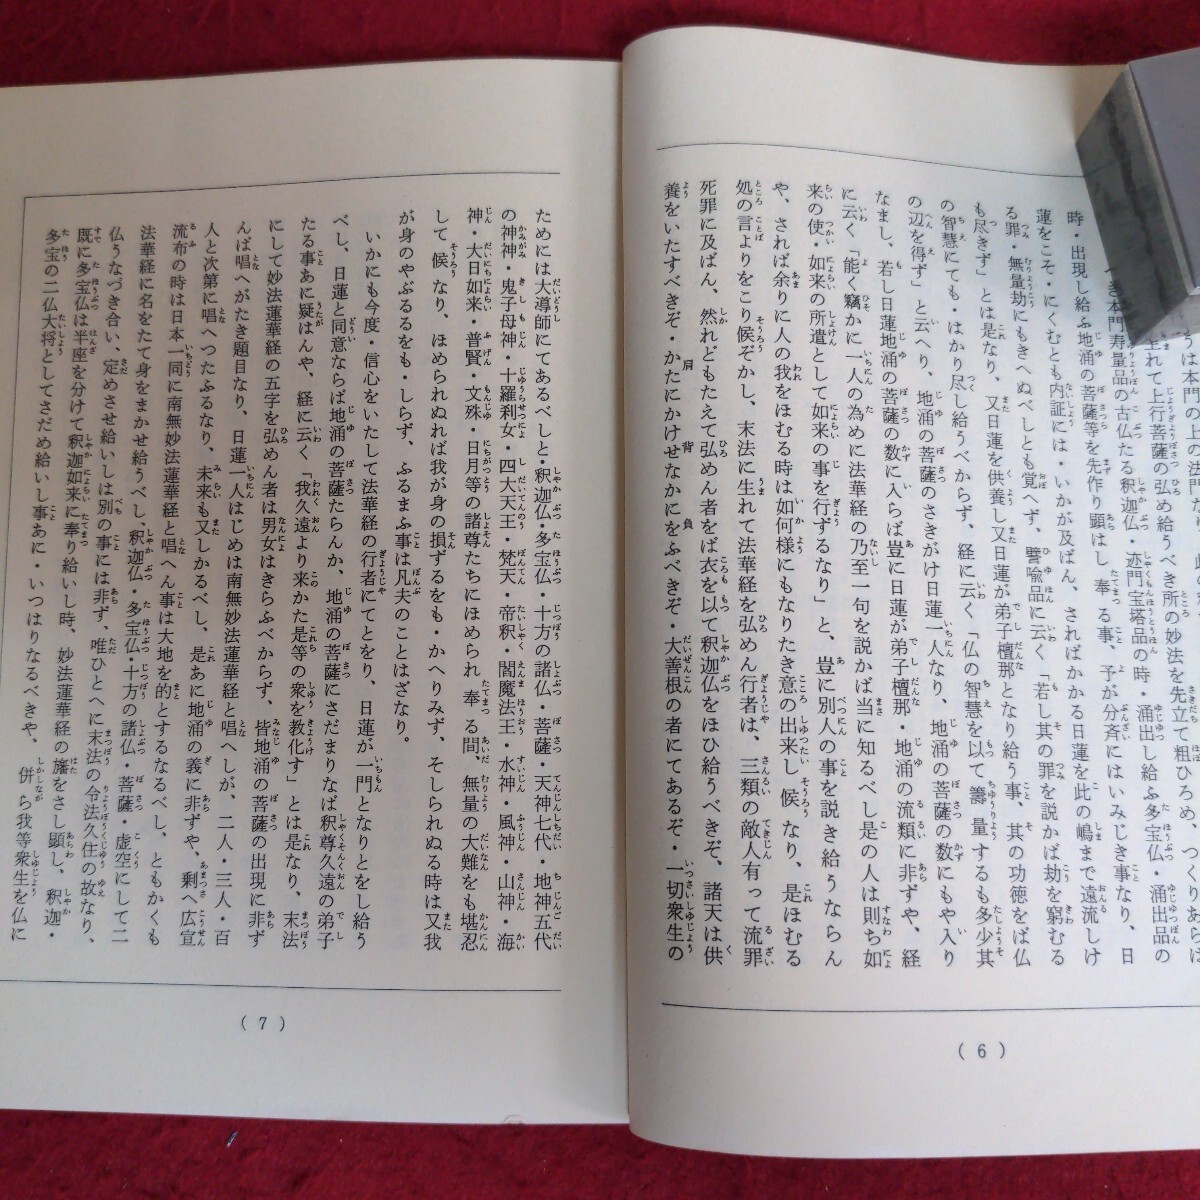 うは本門の上の法門な
生れて上行菩薩の弘め給うべき所の妙法を先立て粗ひろめ、つくりあらは
べき本門寿量品の古仏たる釈迦仏・迹門宝塔品の時・涌出し給ふ多宝仏・涌出品の
時・出現し給ふ地涌の菩薩等を先作り顕はし奉る事、予が分斉にはいみじき事なり、日
蓮をこそ・にくむとも内証には・いかが及ばん、さればかかる日蓮を此の嶋まで遠流しけ
る罪・無量劫にもきへぬべしとも覚へず、譬喩品に云く「若し其の罪を説かば劫を窮むる
も尽きず」とは是なり、又日蓮を供養し又日蓮が弟子檀那となり給う事、其の功徳をば仏
の智慧にても・はかり尽し給うべからず、経に云く「仏の智慧を以て籌量するも多少其
の辺を得ず」と云へり、地涌の菩薩のさきがけ日蓮一人なり、地涌の菩薩の数にもや入り
なまし、若し日蓮地涌の菩薩の数に入らば豈に日蓮が弟子檀那・地涌の流類に非ずや、経
に云く「能く竊かに一人の為めに法華経の乃至一句を説かば当に知るべし是の人は則ち如
来の使・如来の所遣として如来の事を行ずるなり」と、豈に別人の事を説き給うならん
や、されば余りに人の我をほむる時は如何様にもなりたき意の出来し候なり、是ほむる
処の言よりをこり候ぞかし、末法に生れて法華経を弘めん行者は、三類の敵人有つて流罪
死罪に及ばん、然れどもたえて弘めん者をば衣を以て釈迦仏をほひ給うべきぞ、諸天は供
養をいたすべきぞ・かたにかけせなかにをふべきぞ・大善根の者にてあるぞ・一切衆生の
(6)
ためには大導師にてあるべしと・釈迦仏・多宝仏・十方の諸仏・菩薩・天神七代・地神五代
の神神・鬼子母神・十羅刹女・四大天王・梵天・帝釈・閻魔法王・水神・風神・山神・海
神・大日如来・普賢・文殊・日月等の諸尊たちにほめられ奉る間、無量の大難をも堪忍
して候なり、ほめられぬれば我が身の損ずるをも・かへりみず、そしられぬる時は又我
が身のやぶるるをも・しらず、ふるまふ事は凡夫のことはざなり。
いかにも今度・信心をいたして法華経の行者にてとをり、日蓮が一門となりとをし給う
べし、日蓮と同意ならば地涌の菩薩たらんか、地涌の菩薩にさだまりなば釈尊久遠の弟子
たる事あに疑はんや、経に云く「我久遠より来かた是等の衆を教化す」とは是なり、末法
にして妙法蓮華経の五字を弘めん者は男女はきらふべからず、皆地涌の菩薩の出現に非ず
んば唱へがたき題目なり、日蓮一人はじめは南無妙法蓮華経と唱へしが、二人・三人・百
人と次第に唱へつたふるなり、未来も又しかるべし、是あに地涌の義に非ずや、剰へ広宣
流布の時は日本一同に南無妙法蓮華経と唱へん事は大地を的とするなるべし、ともかくも
法華経に名をたて身をまかせ給うべし、釈迦仏・多宝仏・十方の諸仏・菩薩・虚空にして二
仏うなづき合い、定めさせ給いしは別の事には非ず、唯ひとへに末法の令法久住の故なり、
既に多宝仏は半座を分けて釈迦如来に奉り給いし時、妙法蓮華経の旛をさし顕し、釈迦・
多宝の二仏大将としてさだめ給いし事あに・いつはりなるべきや、併ら我等衆生を仏に
(7)